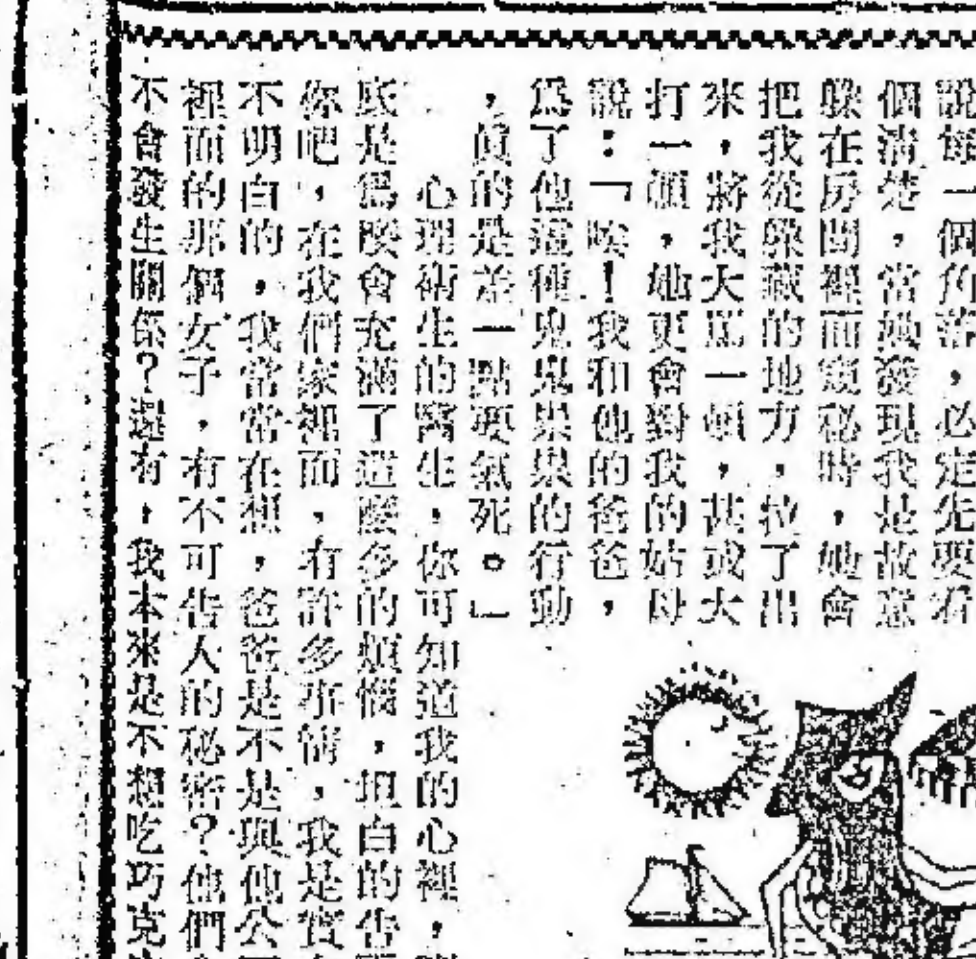 說每一個角落，必定先要看
個清楚，當她發現我是故意
躲在房間裡面窺秘時，她會
把我從躲藏的地方，拉了出
來，將我大罵一頓，甚或大
打一頓，她更會對我的姑母
說：「唉！我和他的爸爸，
為了他這種鬼鬼祟祟的行動
，眞的是差一點要氣死。」
心理衛生的醫生，你可知道我的心裡，
底是爲 會充滿了這麼多的煩惱，坦白的告
你吧，在我們家裡面，有許多事情，我是實
不明白的，我常常在想，爸爸是不是與他公
裡面的那個女子，有不可告人的秘密？他們
不會發生關係？還有，我本來是不想吃巧克